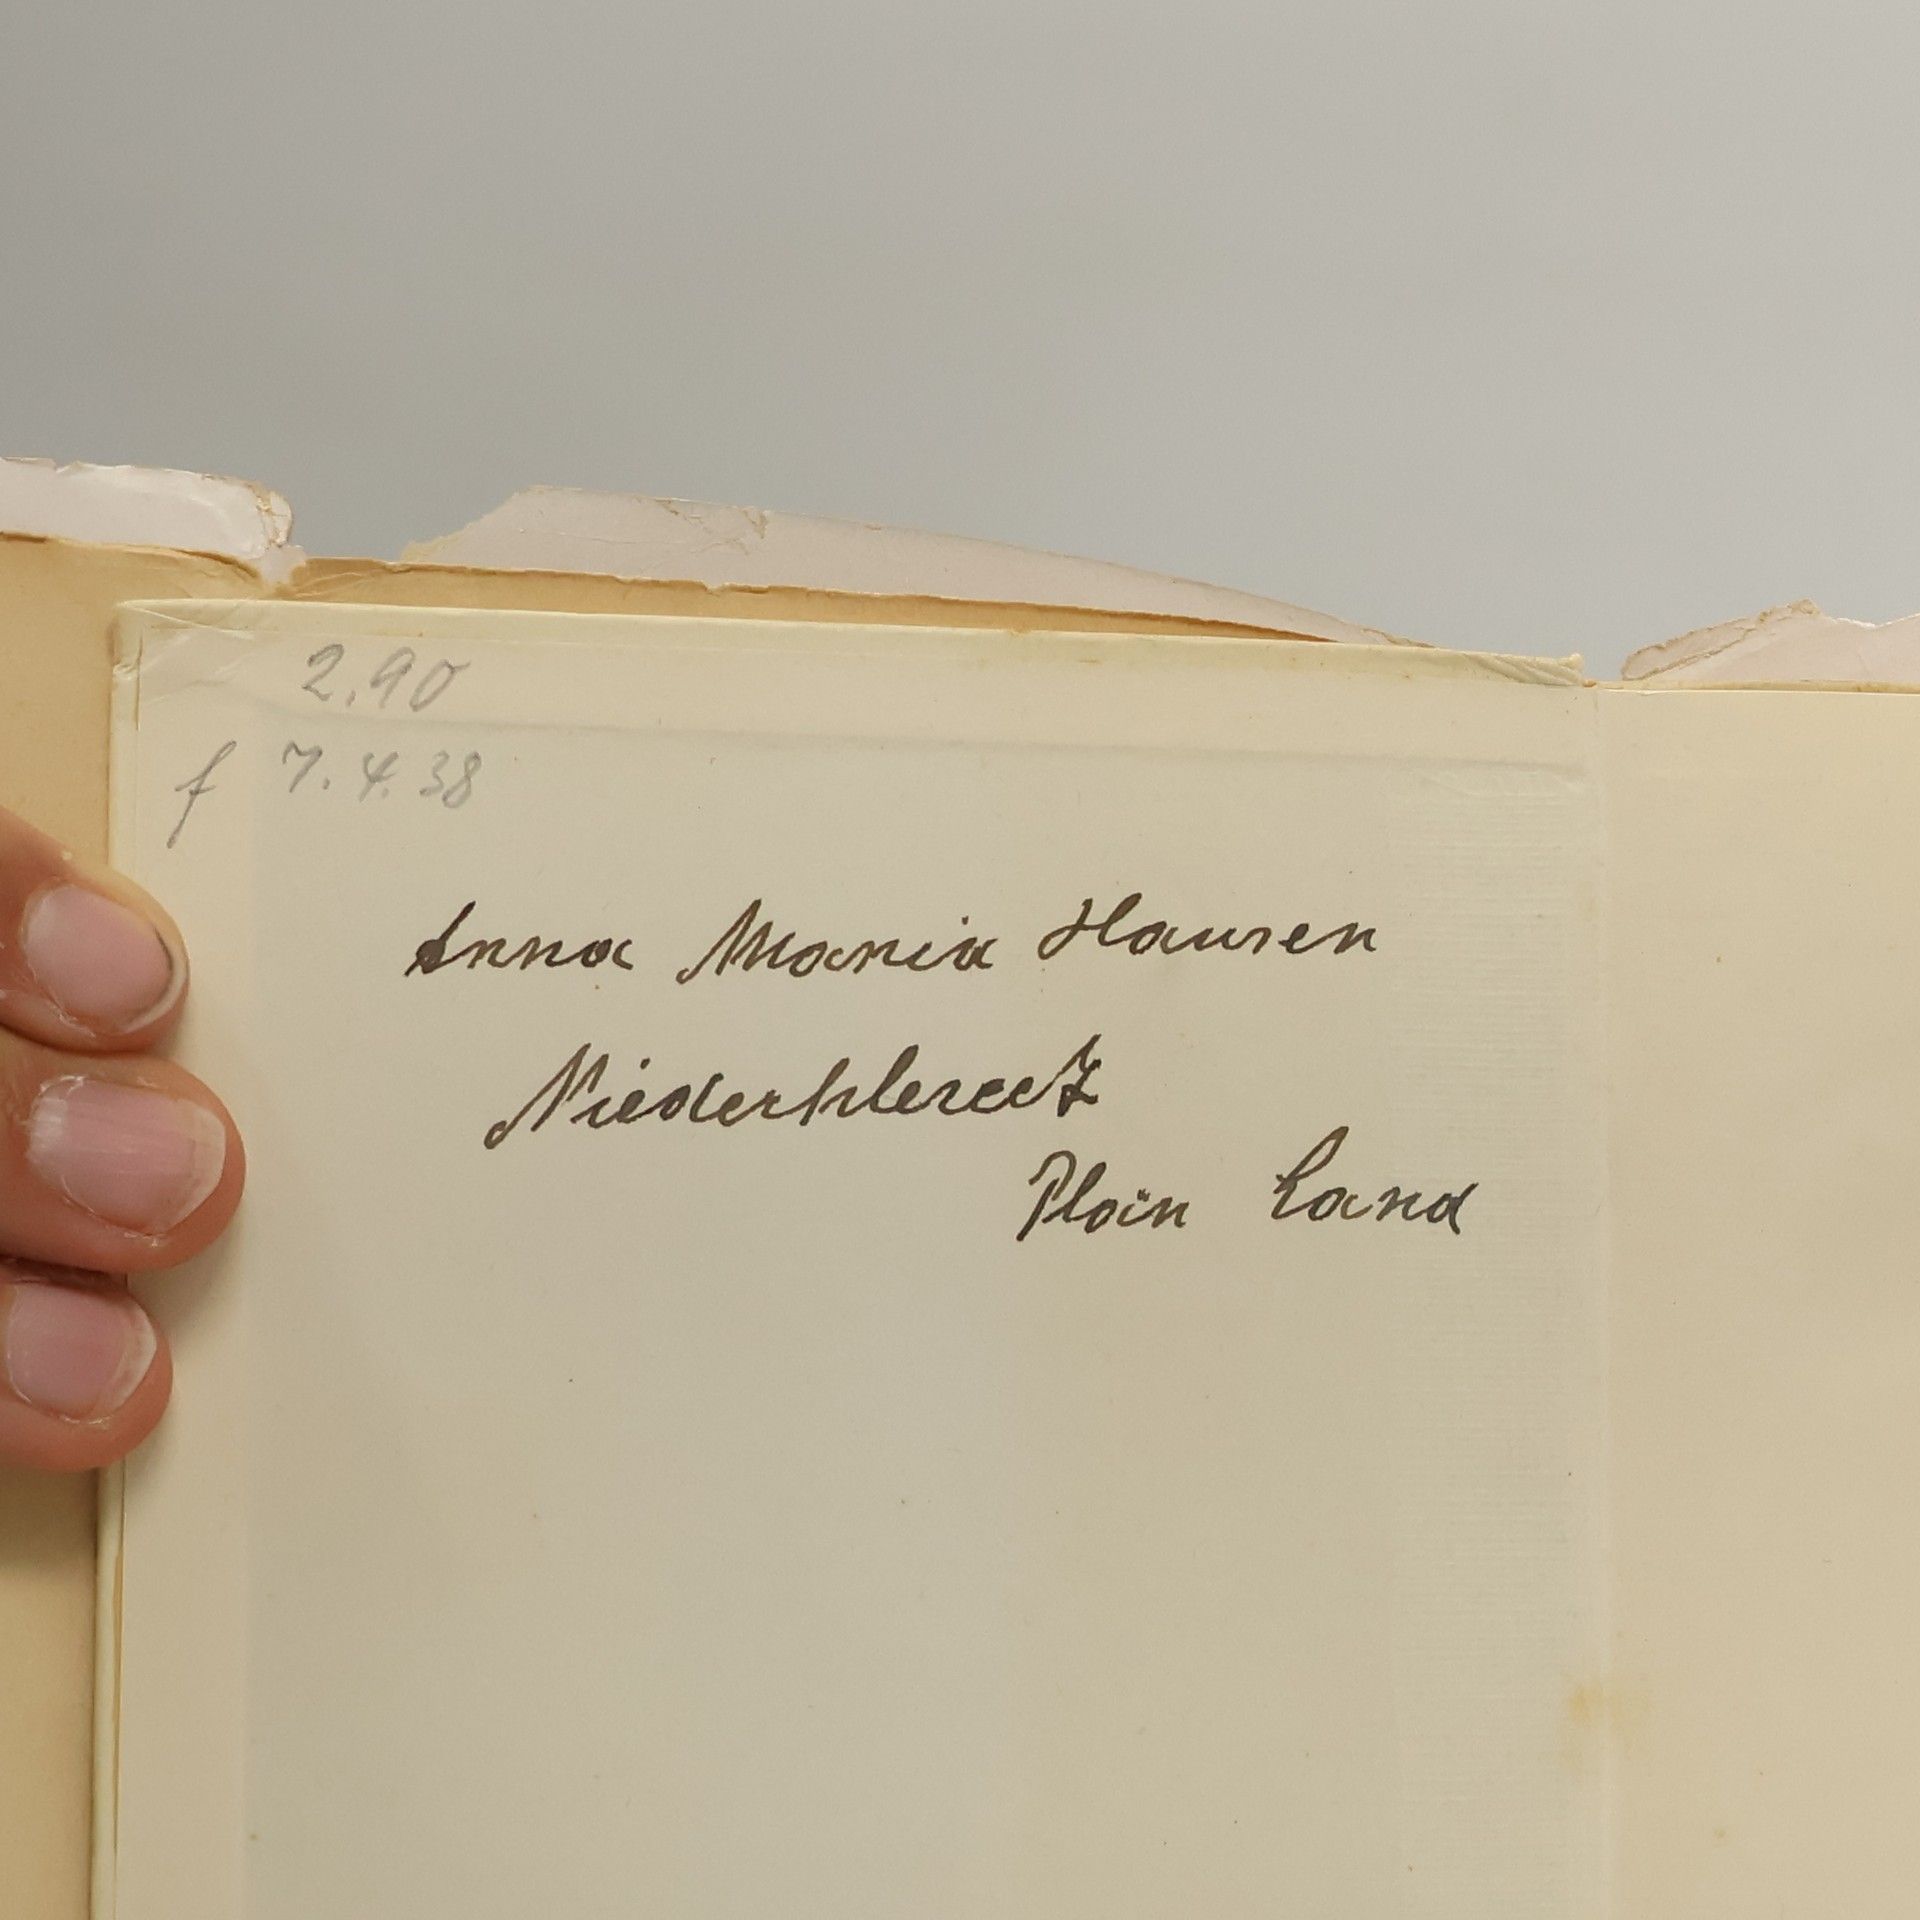 2.90
f 7.4.38
Anna Maria Hansen
Niederkleveez
Plön Land